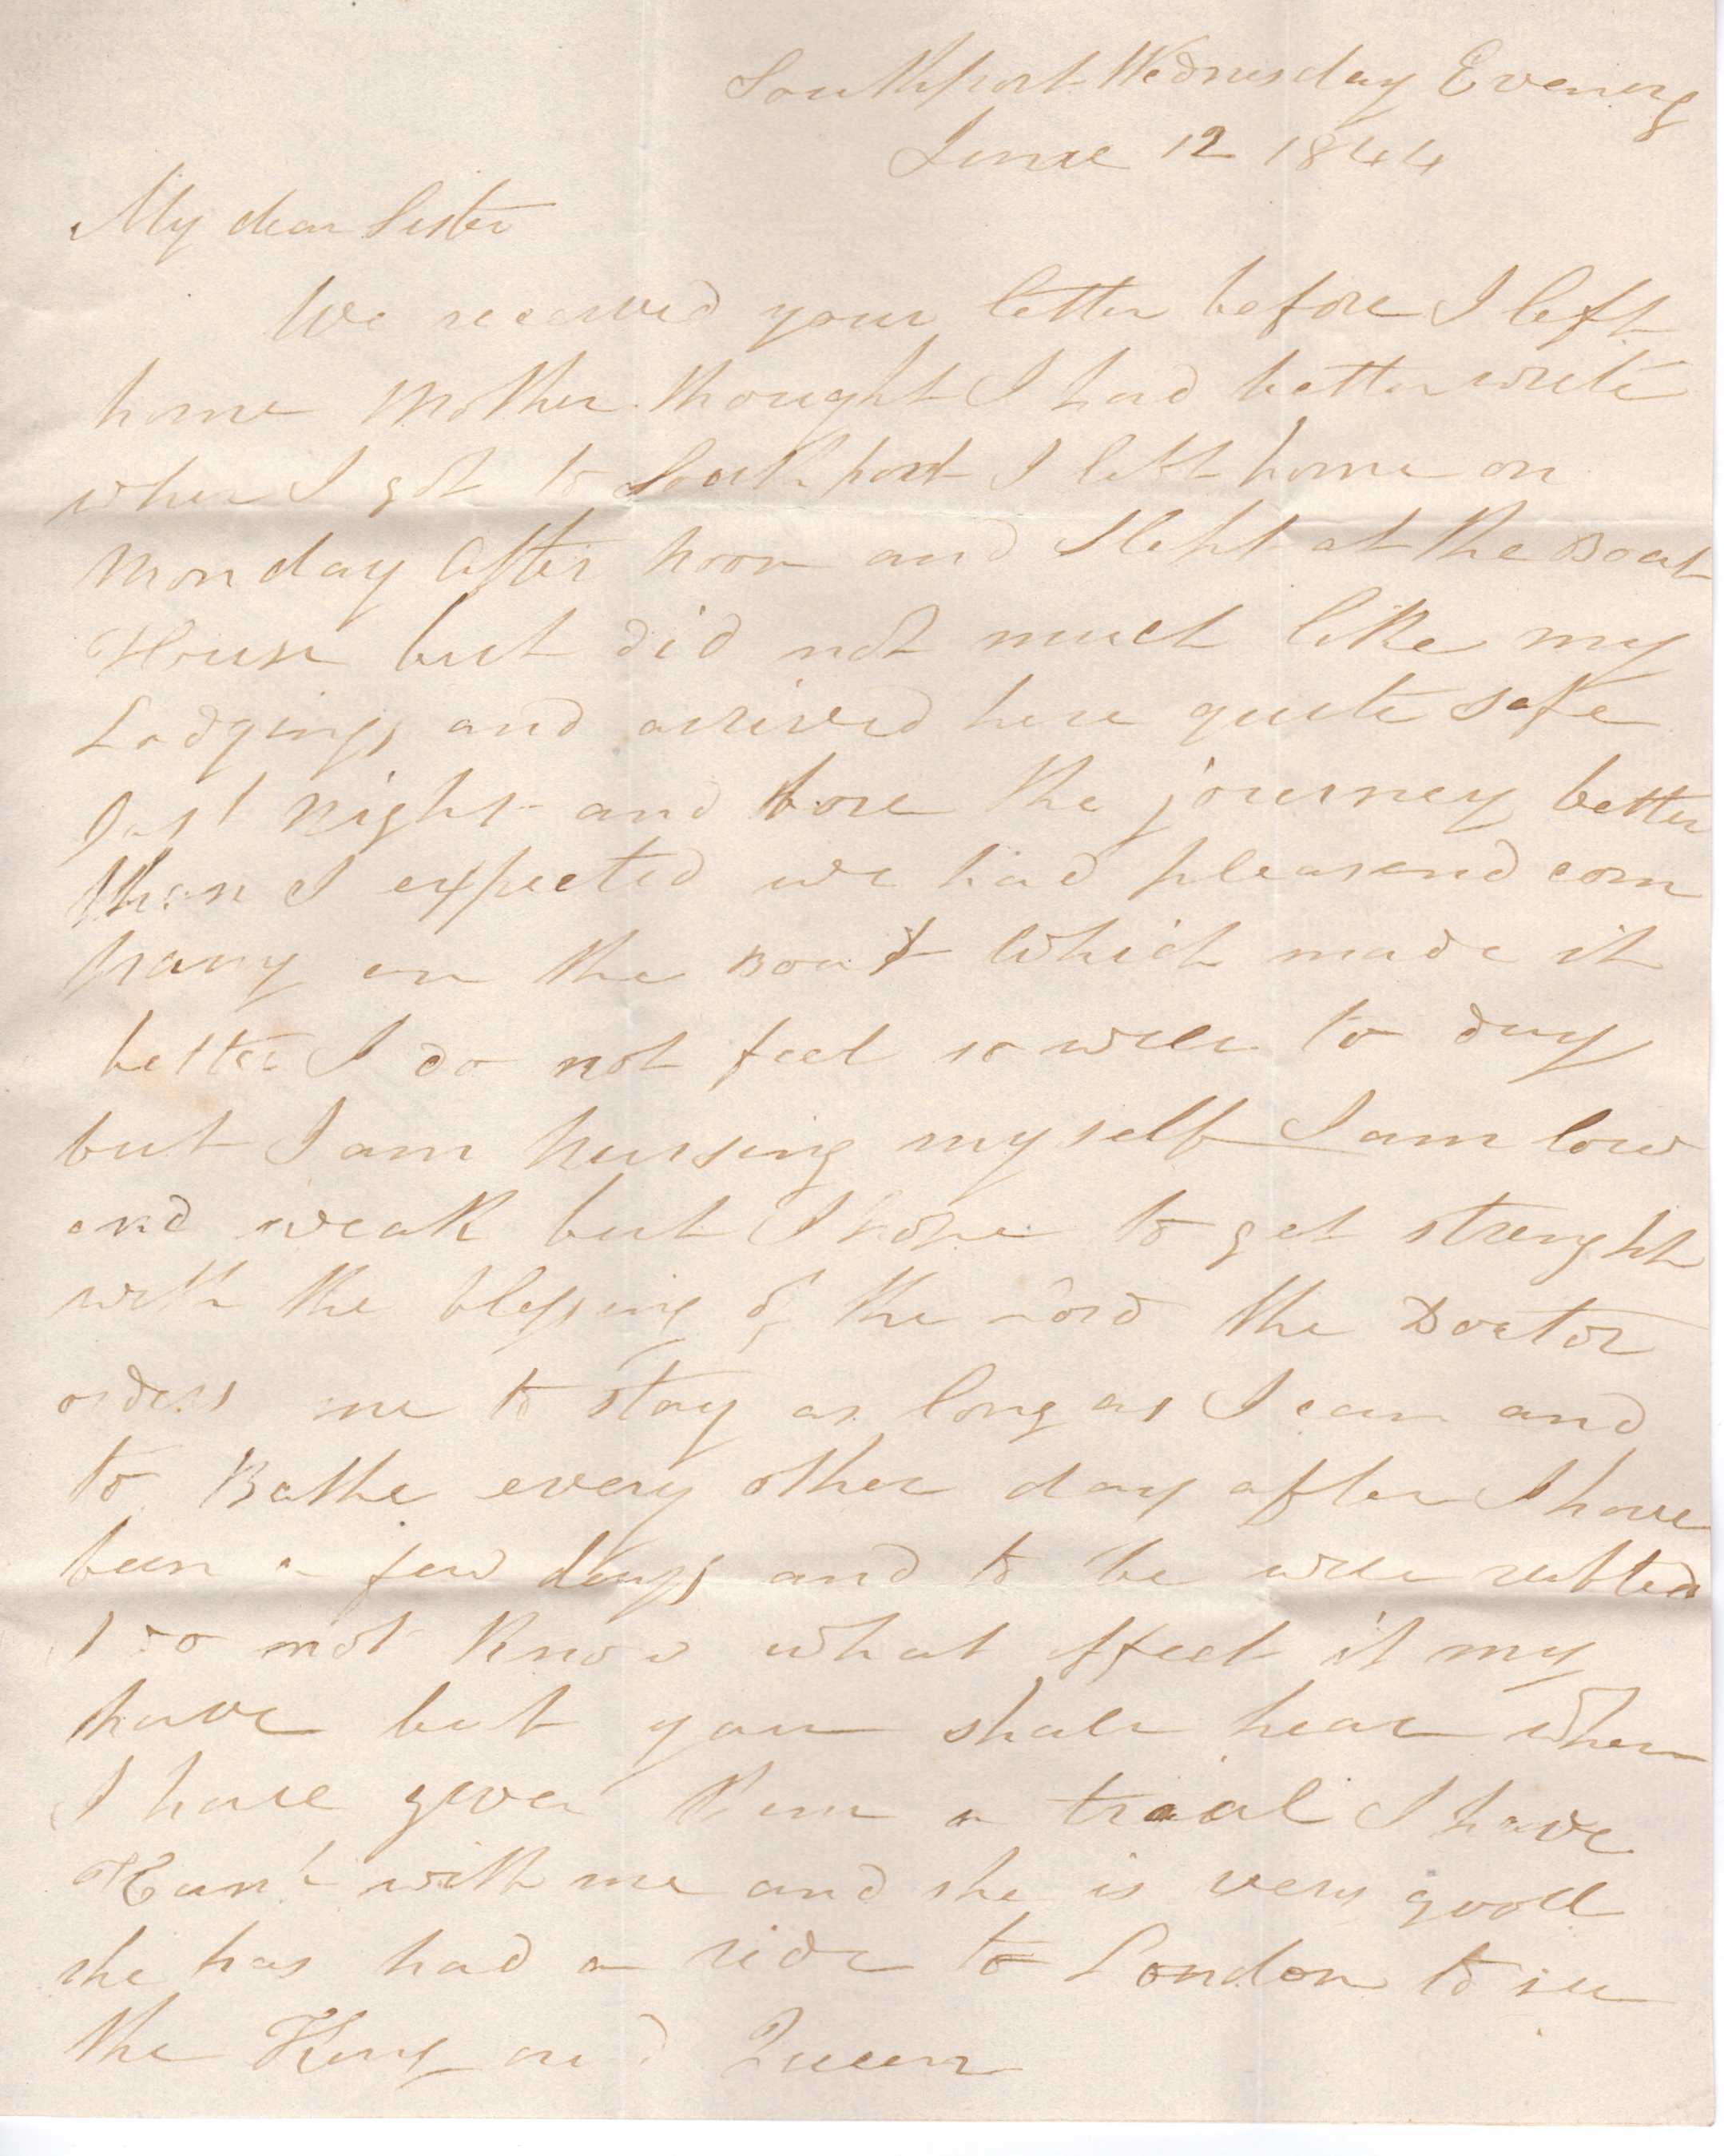 Southport Wednesday Evening
June 12 1844
My dear Sister
We received your letter before I left
home Mother thought I had better write
when I got to Southport I left home on
Monday After noon and Slept at the Boat
House but did not much like my
Lodgings and arrived here quite safe
last night and bore the journey better
than I expected we had pleasend com
pany on the Boat which made it
better I do not feel so well to day
but I am nursing my self I am low
and weak but I hope to get strenght
with the blessing of the Lord the Doctor
orders me to stay as long as I can and
to Bathe every other day after I have
been a few days and to be well rubbed
I do not know what effect it my
have but you shall hear when
I have given them a traial I have
with me and she is very good
she has had a ride to London to see
the King and Queen